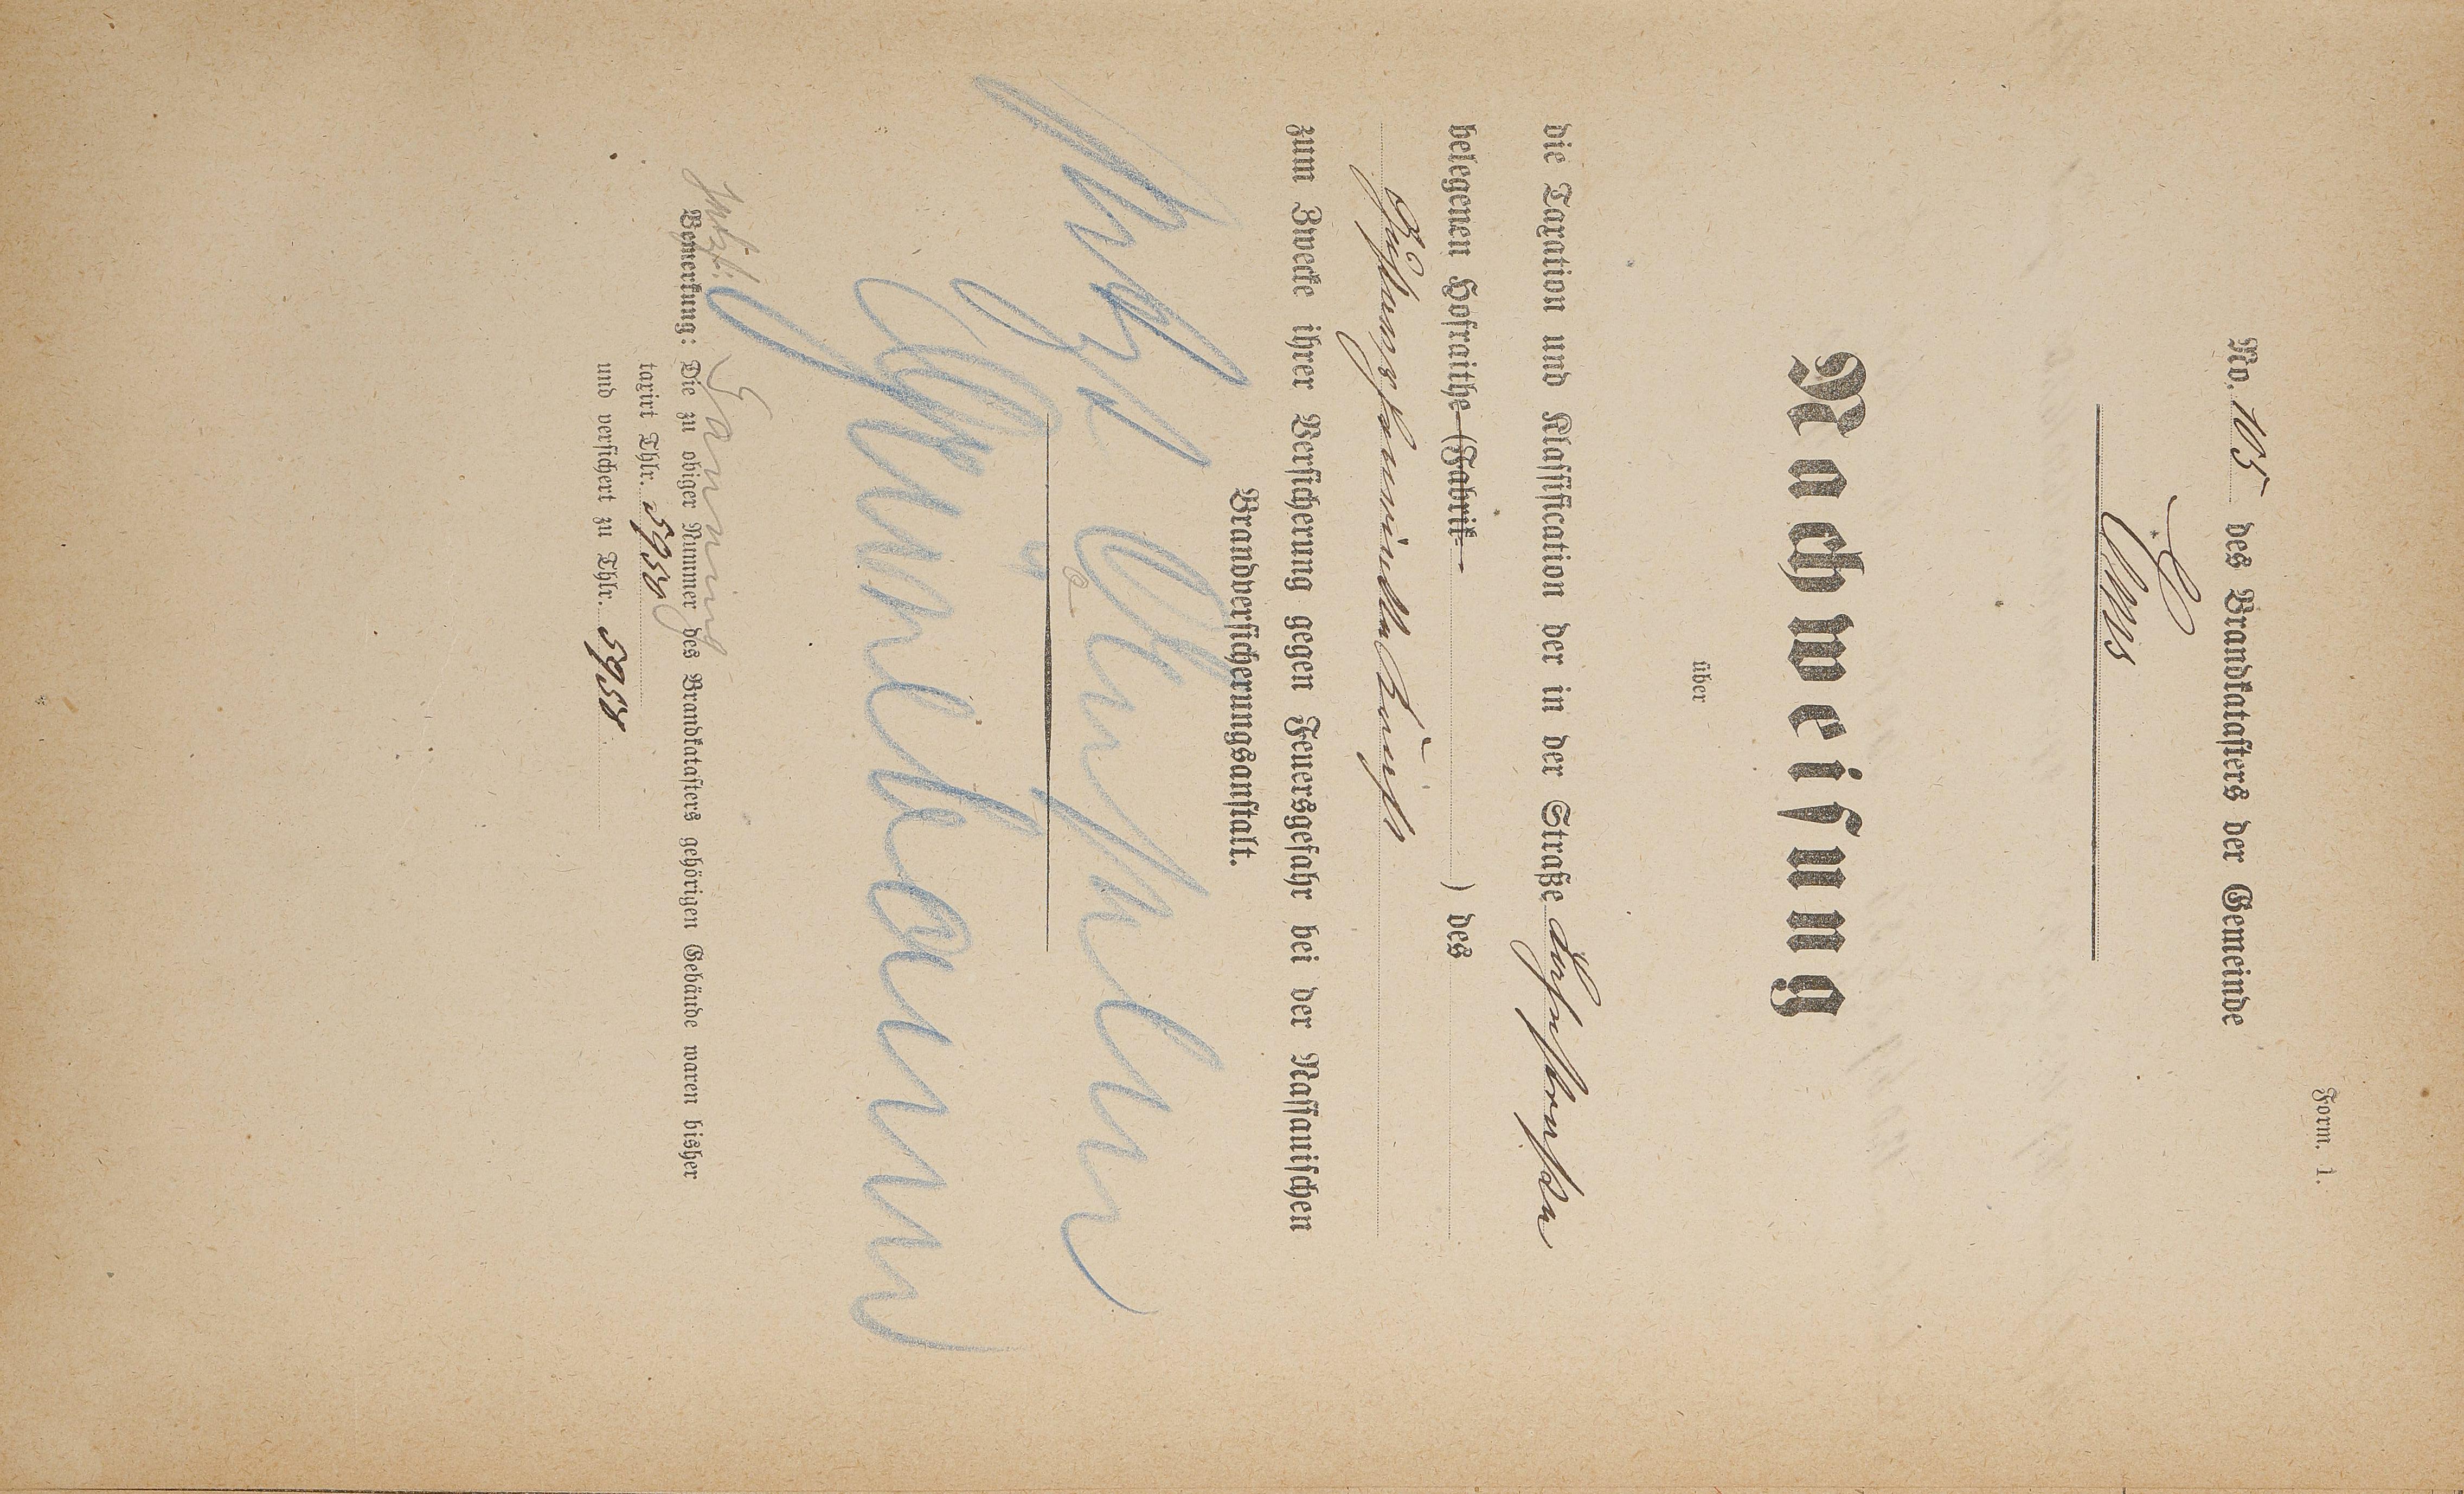 Form. 1.
No. 105 des Brandkatasters der Gemeinde
Ems
Nachweisung
über
die Taxation und Klassification der in der Straße
belegenen Hofraithe (Fabrik- ) des
zum Zwecke ihrer Versicherung gegen Feuersgefahr bei der Nassauischen
Brandversicherungsanstalt.
jetzt
Grünebaum
jetzt
Bemerkung: Die zu obiger Nummer des Brandkatasters gehörigen Gebände waren bisher
taxirt Thlr. 5950
und versichert zu Thlr. 5950